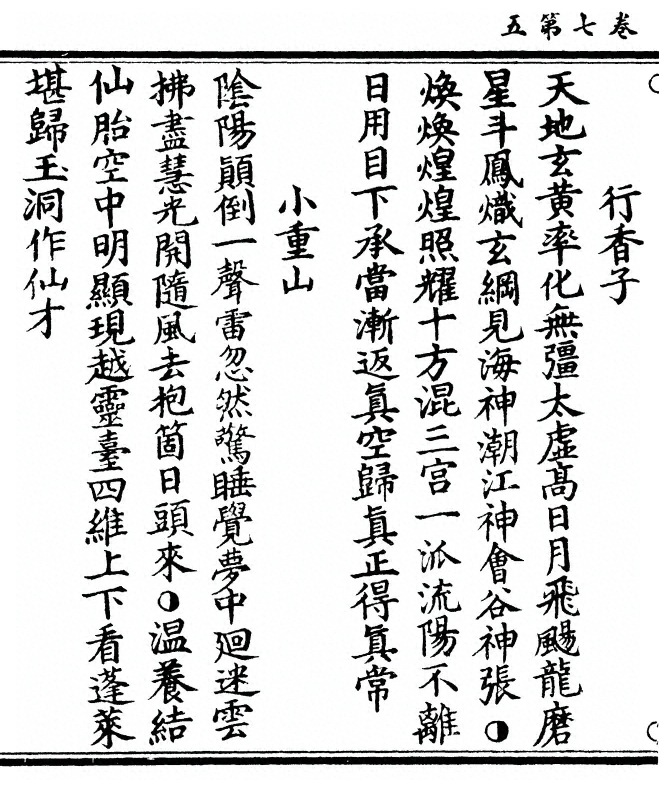 卷七第五
行香子
天地玄黃率化無彊太虛高日月飛颺龍磨
星斗鳳熾玄綱見海神潮江神會谷神張◑
煥煥煌煌照耀十方混三宮一派流陽不離
日用目下承當漸返眞空歸眞正得眞常
小重山
陰陽顚倒一聲雷忽然驚睡覺夢中廻迷雲
拂盡慧光開隨風去抱箇日頭來◑温養結
仙胎空中明顯現越靈臺四維上下看蓬萊
堪歸玉洞作仙才